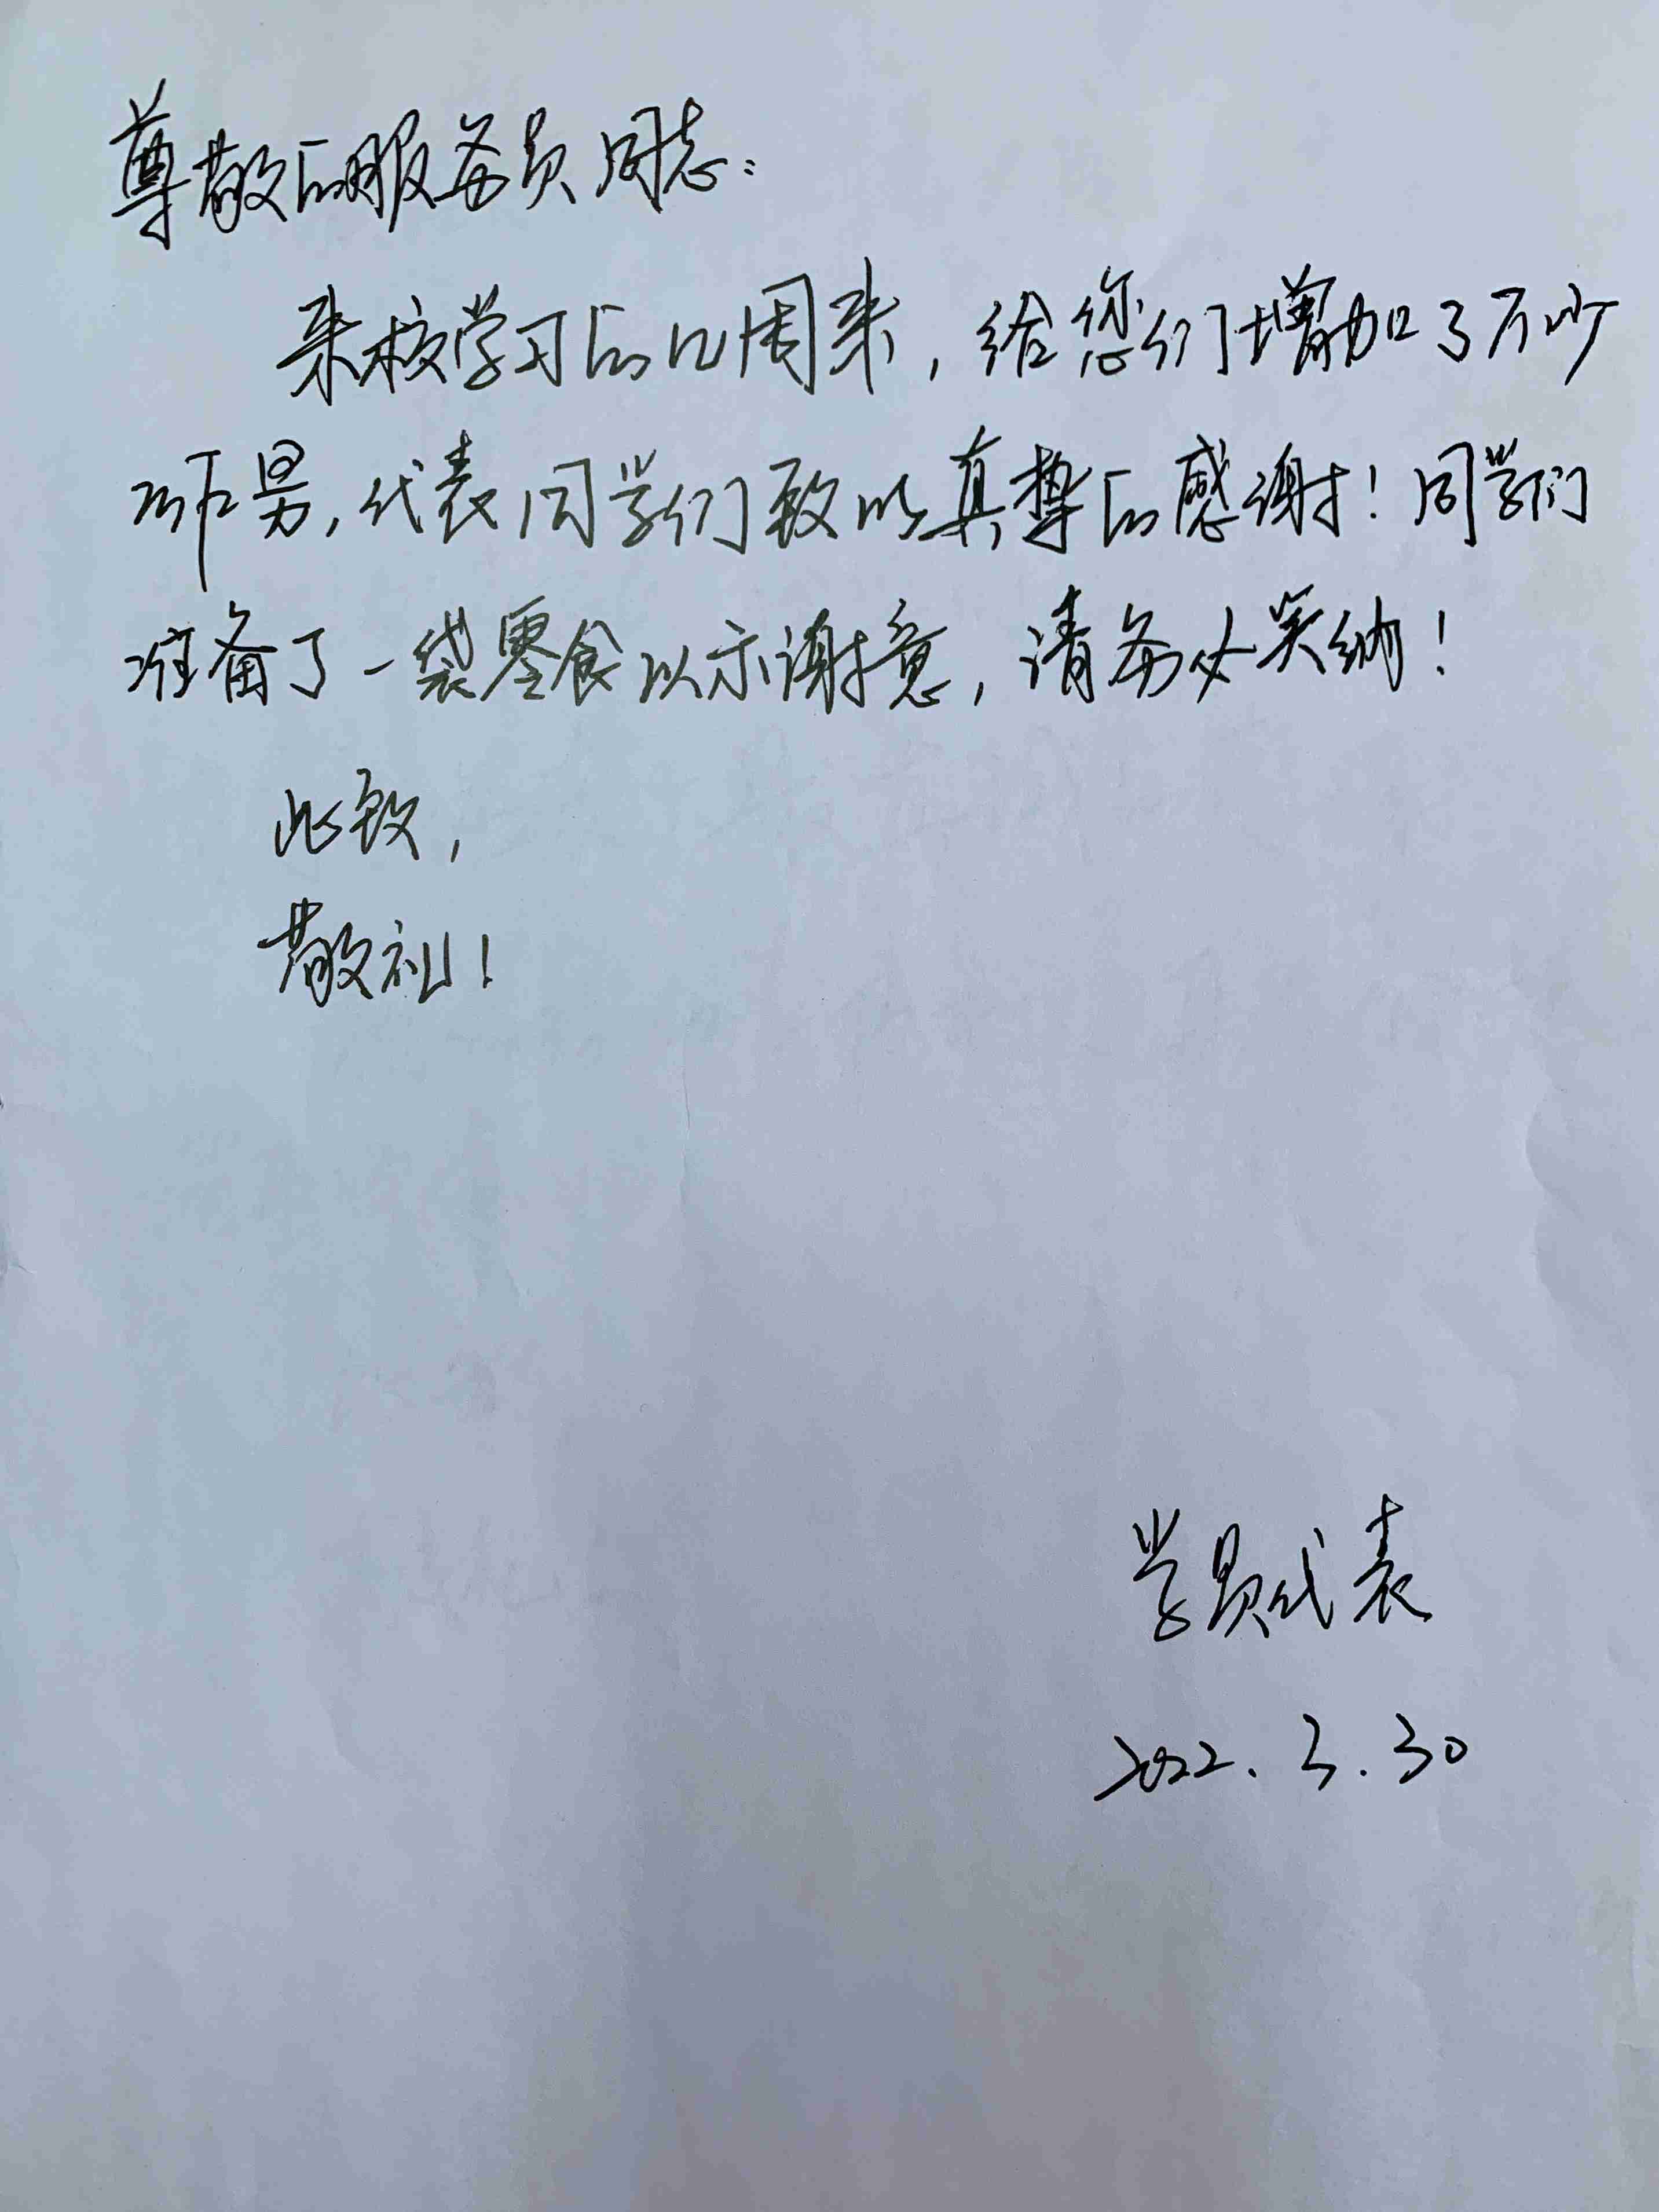 尊敬的服务员同志：
来校学习的几周来，给您们增加了不少
麻烦，代表同学们致以真挚的感谢！同学们
准备了一袋零食以示谢意，请务必笑纳！
此致，
敬礼！
学员代表
2022.3.30